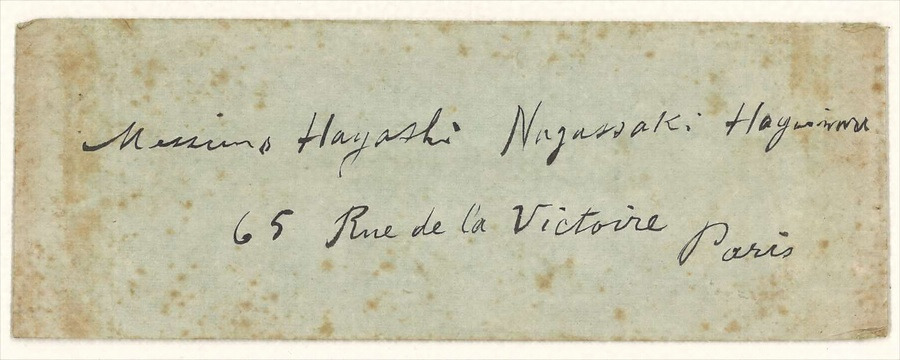 Messieurs Hayashi Nagassaki
65 Rue de la Victoire
Paris